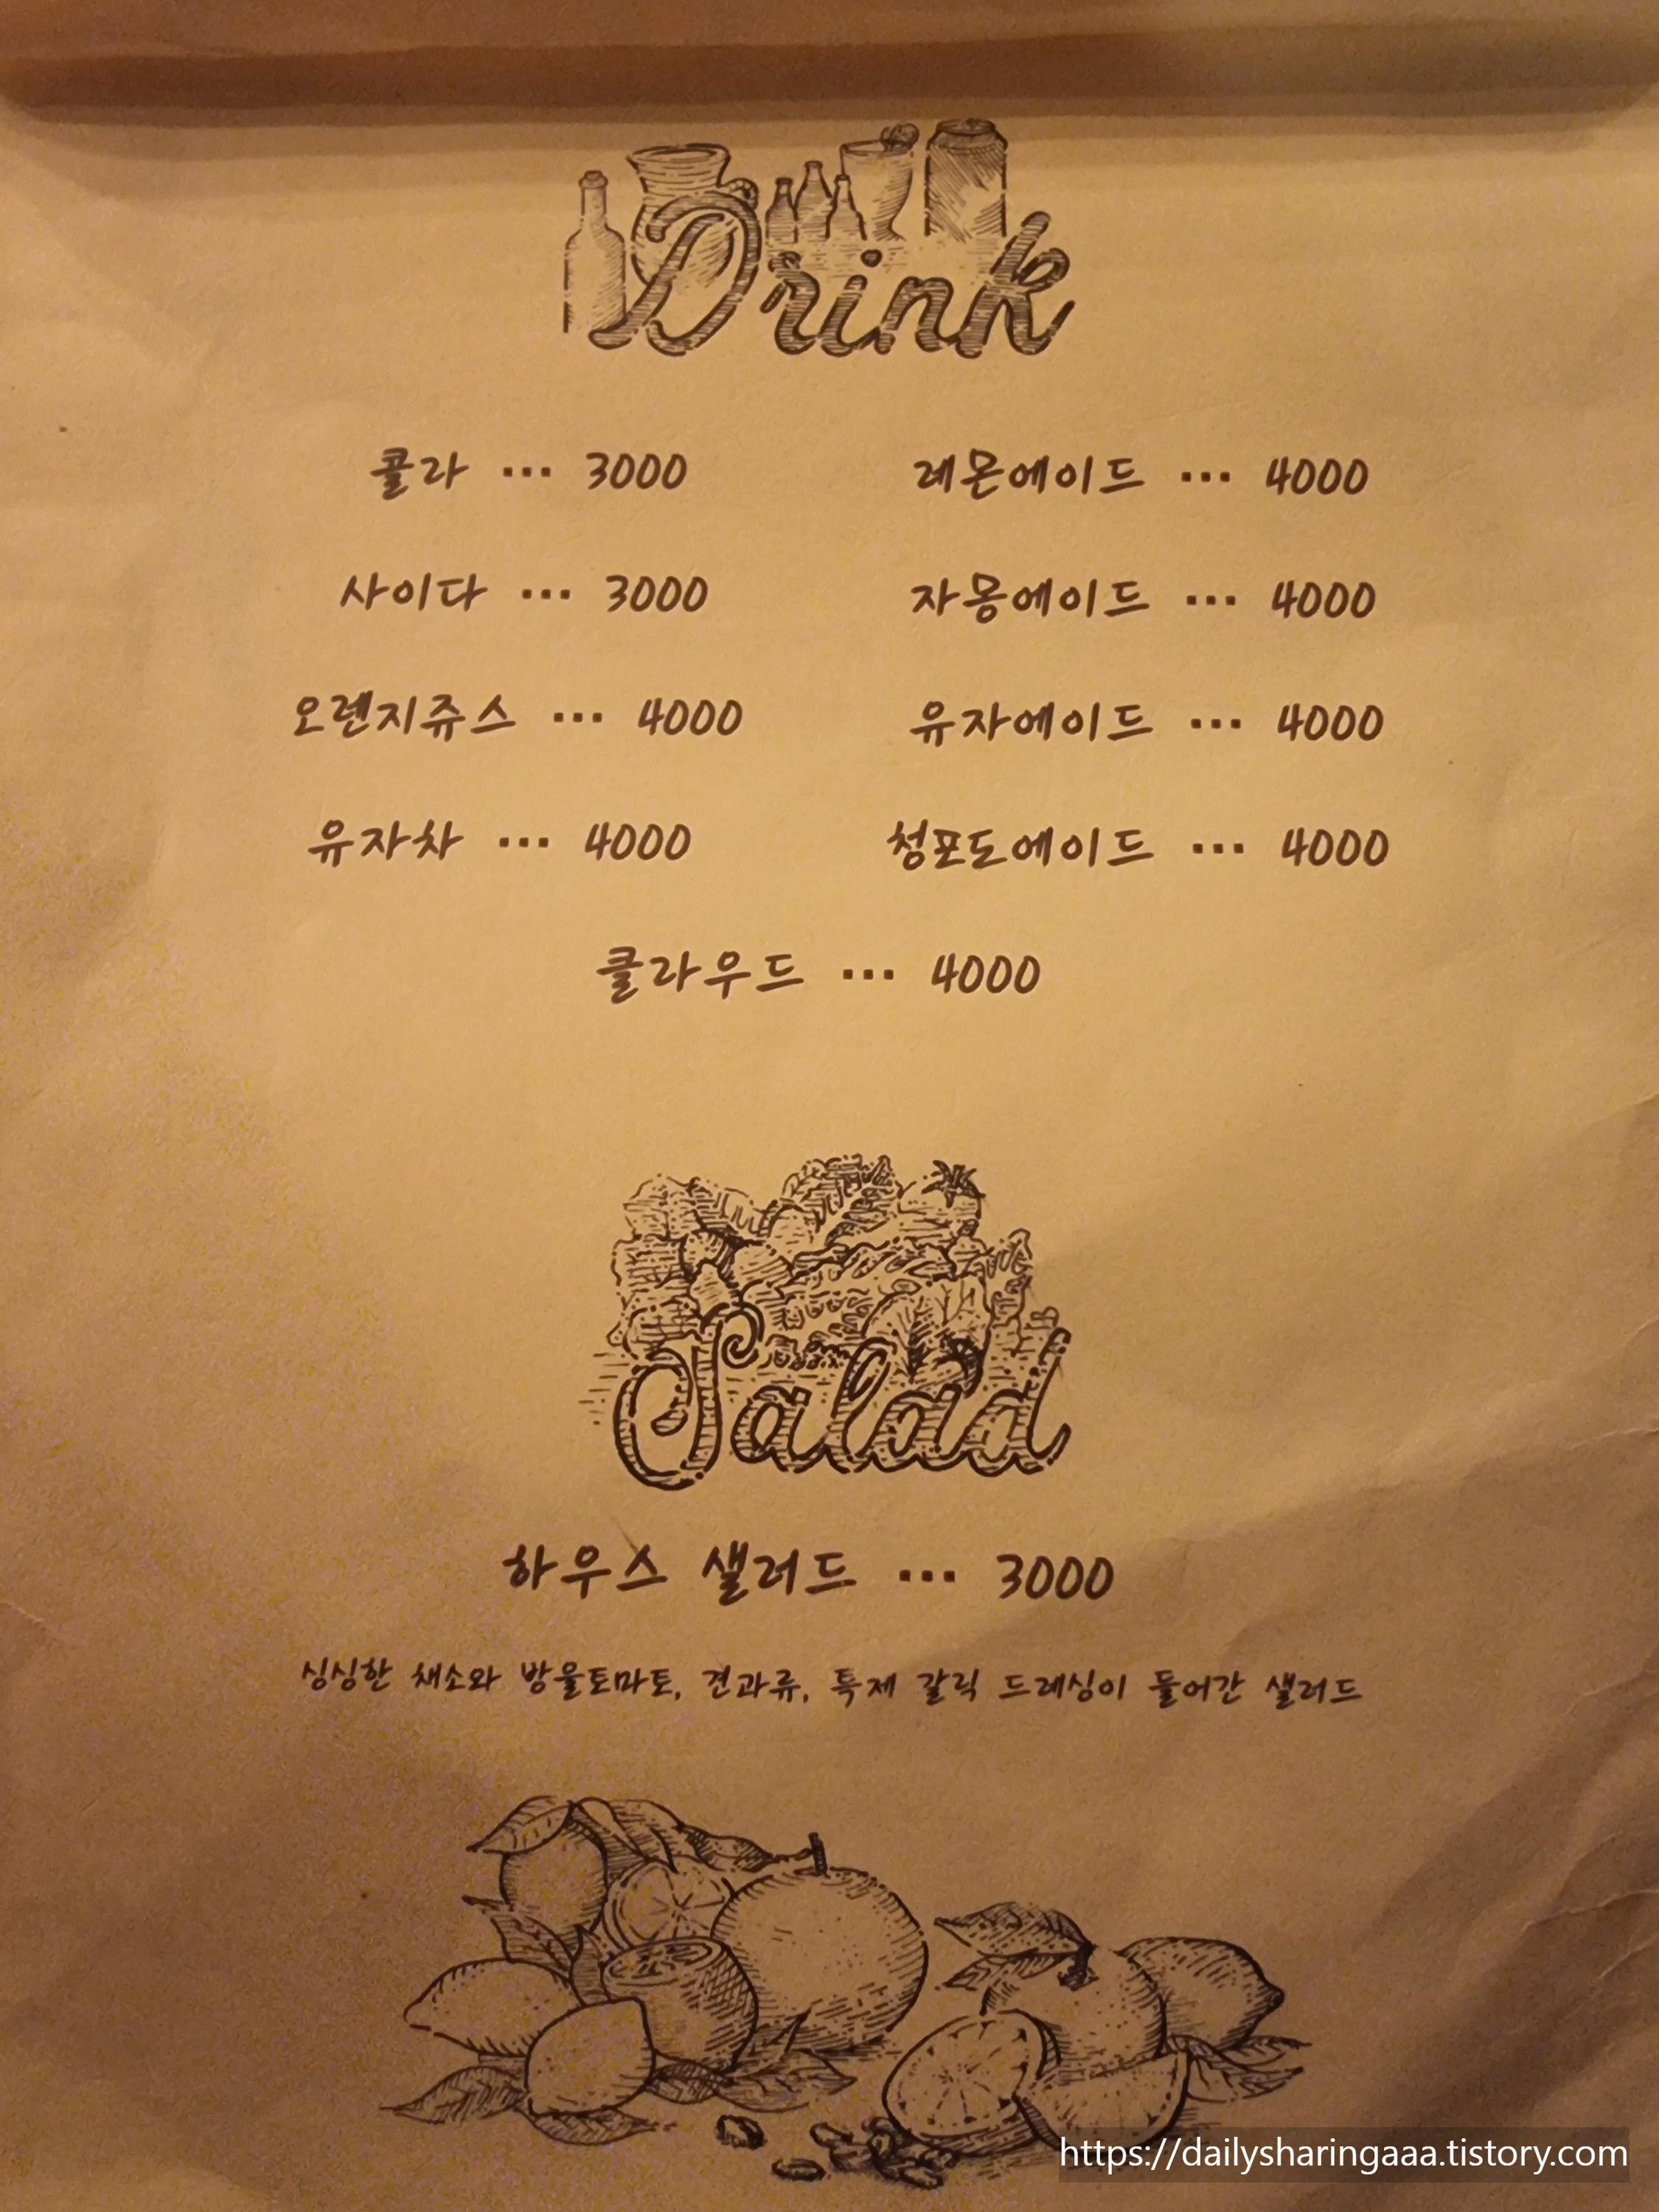 Drink
콜라 ... 3000
레몬에이드 ... 4000
사이다 ... 3000
자몽에이드 ... 4000
오렌지쥬스 ... 4000
유자에이드 ... 4000
유자차 ... 4000
청포도에이드 ... 4000
클라우드 ... 4000
Salad
하우스 샐러드 ... 3000
싱싱한 채소와 방울토마토, 견과류, 특제 갈릭 드레싱이 들어간 샐러드
https://dailysharingaaa.tistory.com